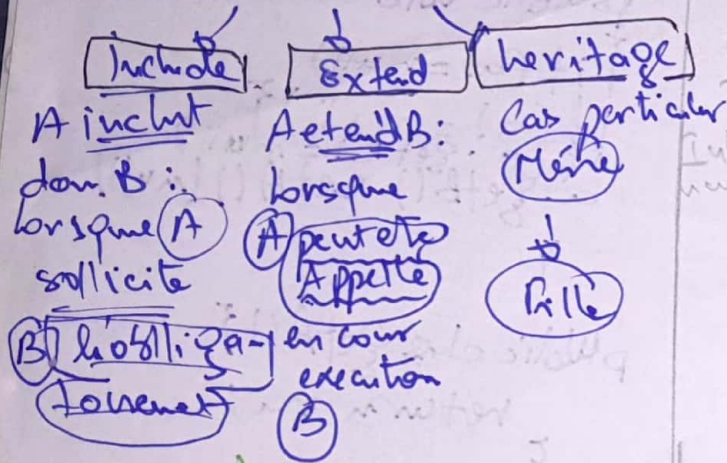 Include
A inclut
dans B :
lorsque A
sollicite
B l'obliga-
toirement
Extend
A etend B :
lorsque
A peut etre
Appelle
en cour
execution
B
heritage
Cas particulier
Mère
Fille